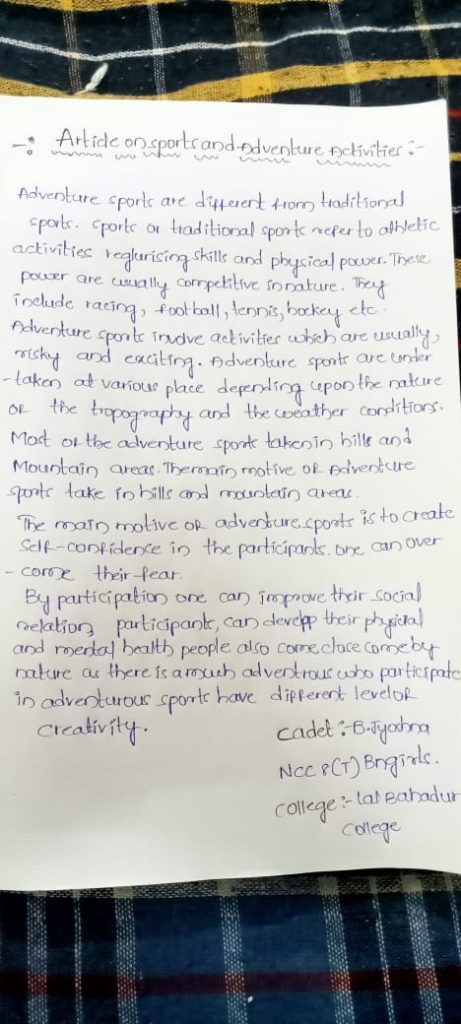 -: Article on sports and Adventure Activities :-
Adventure sports are different from traditional
sports. sports or traditional sports refer to athletic
activities reglurising skills and physical power. These
power are usually competitive in nature. They
include racing, football, tennis, hockey etc.
Adventure sports involve activities which are usually,
risky and exciting. Adventure sports are under
-taken at various place depending upon the nature
OR the topography and the weather conditions.
Most of the adventure sports taken in hills and
Mountain areas. The main motive OR Adventure
sports take in hills and mountain areas.
The main motive OR adventure sports is to create
Self-confidence in the participants. one can over
-come their fear.
By participation one can improve their social
relation, participants, can develop their physical
and mental health people also come close come by
nature as there is a much adventrous who participate
in adventurous sports have different level of
Creativity.
Cadet :- B. Jyoshna
NCC 8(T) Bn girls.
College :- Lal Bahadur
College